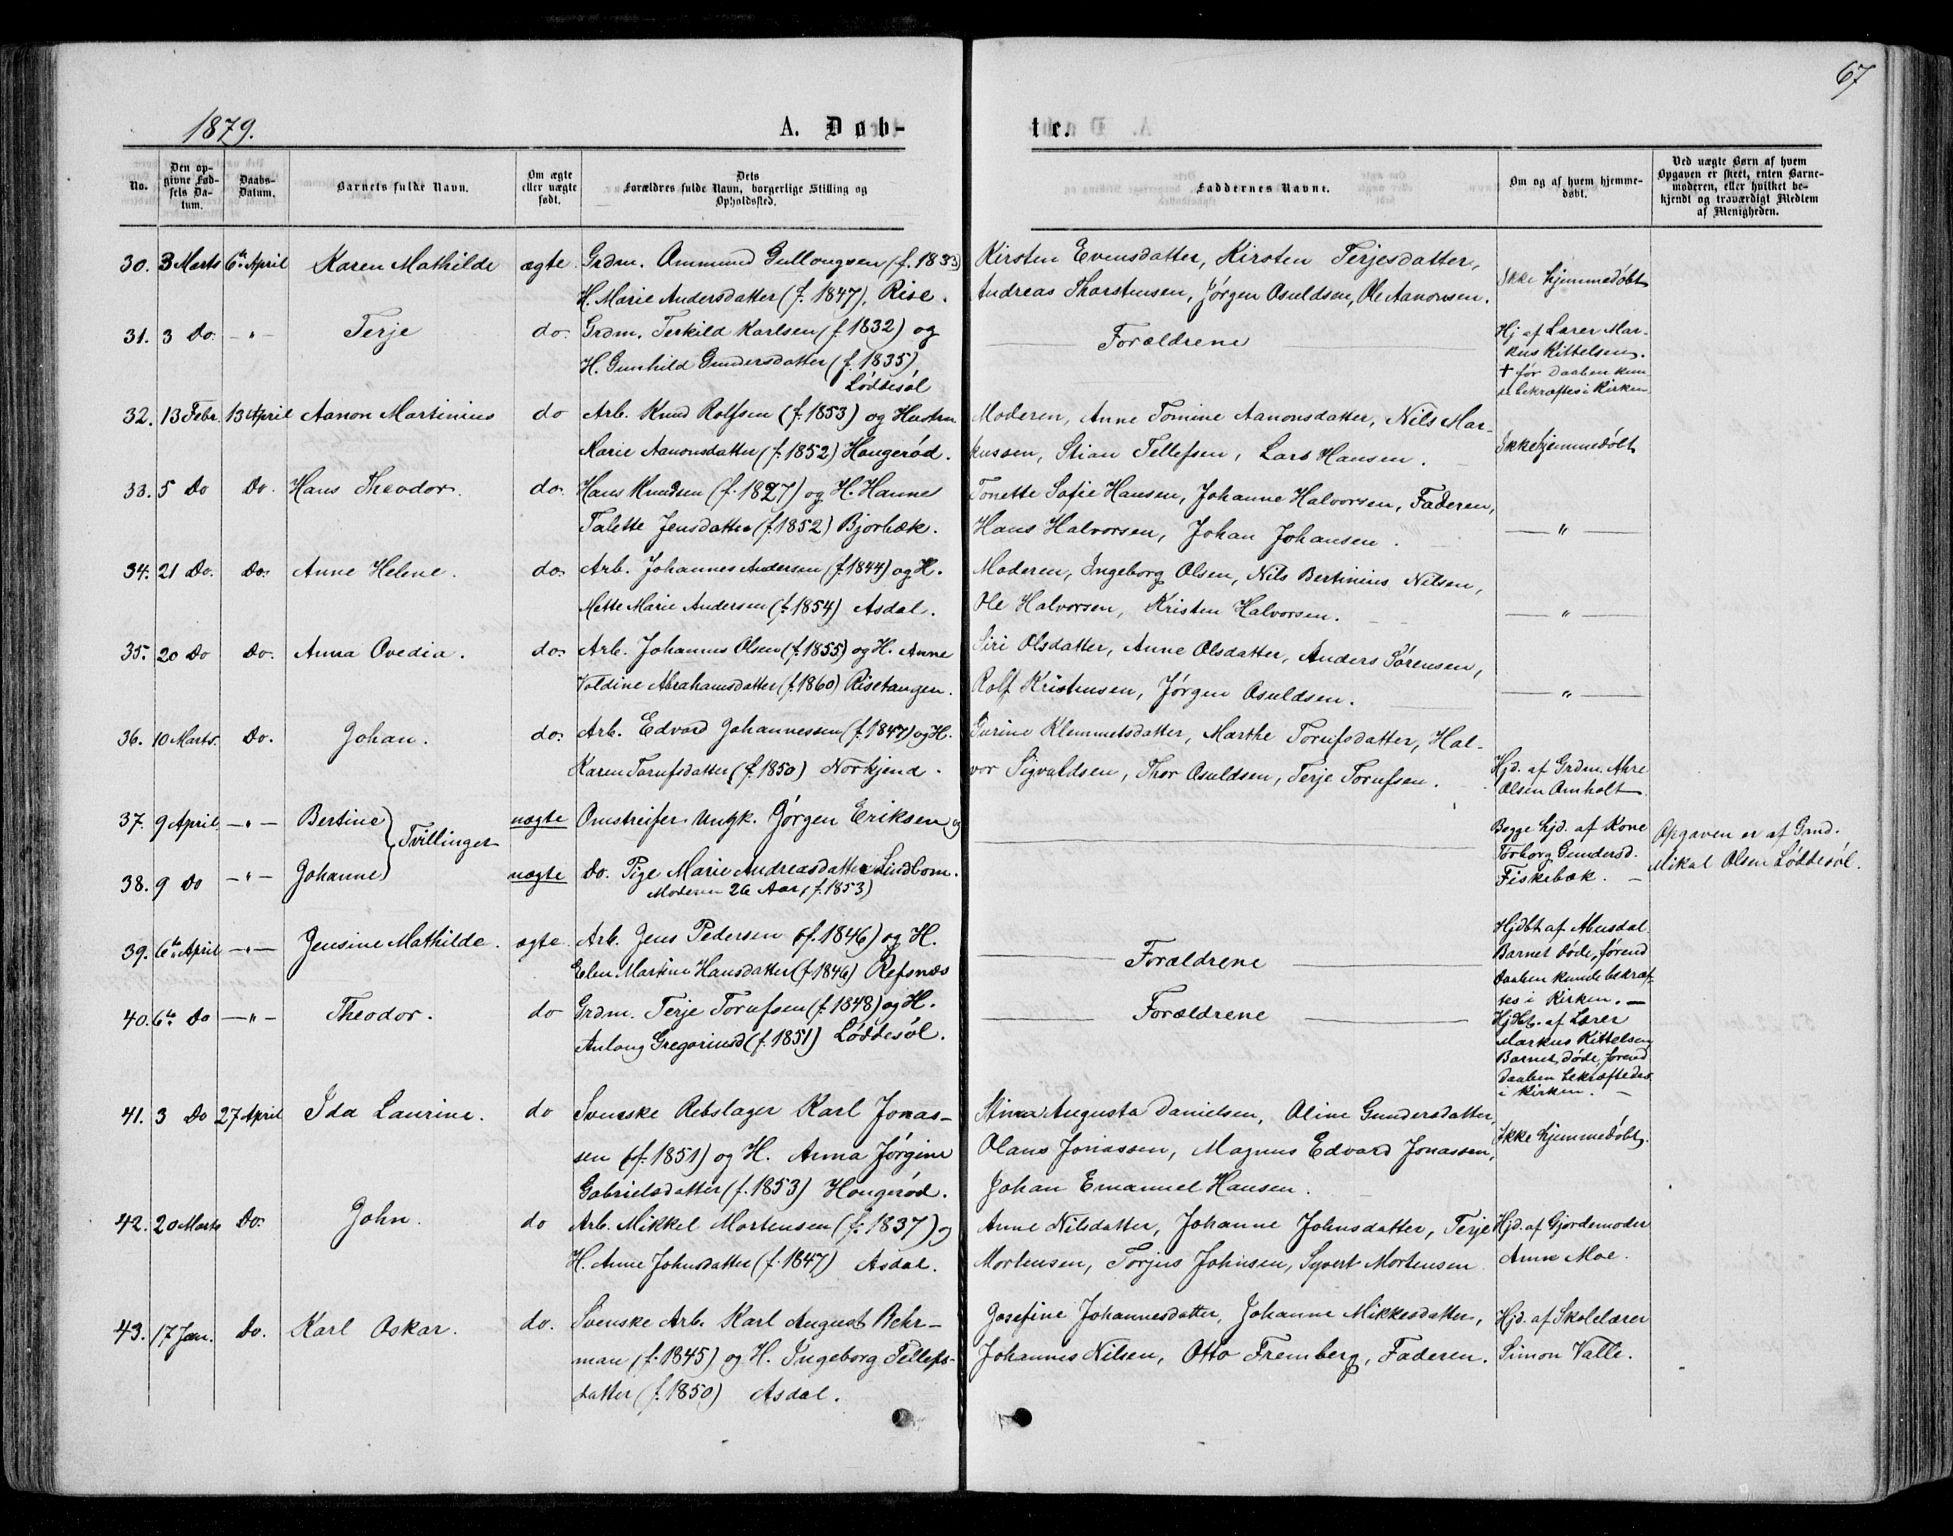 1879.
A. Døb-
No.
Den op-
givne Fød-
sels Da-
tum.
Daabs-
Datum.
Barnets fulde Navn.
Om ægte
eller uægte
født.
Dets
Forældres fulde Navn, borgerlige Stilling og
Opholdssted.
30. 3 Marts 6te April Karen Mathilde ægte Grdm. Ommund Gullougsen (f. 1833)
H. Marie Andersdatter (f. 1847). Rise.
31. 3 Do. - " - Terje do. Grdm. Terkild Karlsen (f. 1832) og
H. Gunhild Gundersdatter (f. 1835)
Løddesøl
32. 13 Febr. 13 April Aanon Martinius do Arb. Knud Rolfsen (f. 1853) og Hustru
Marie Aanonsdatter (f. 1852) Haugerød.
33. 5 Do Do. Hans Theodor. do. Hans Knudsen (f. 1827) og H. Hanne
Talette Jensdatter (f. 1852) Bjorbæk.
34. 21 Do. Do. Anne Helene. do. Arb. Johannes Andersen (f. 1844) og H.
Mette Marie Andersen (f. 1854) Asdal.
35. 20 Do Do. Anna Ovedia. do. Arb. Johannes Olsen (f. 1855) og H. Anne
Voldine Abrahamsdatter (f. 1860) Risetangen.
36. 10 Marts. Do. Johan. do. Arb. Edvard Johannessen (f. 1847) og H.
Karen Torufsdatter (f. 1850) Norkjend.
37. 9 April - " - Bertine
Tvillinger
uægte Omstreifer Ungk. Jørgen Eriksen og
38. 9 Do - " - Johanne uægte Do. Pige Marie Andreasdatter Lindbom.
Moderen 26 Aar, (f. 1853)
39. 6te April - " - Jensine Mathilde. ægte Arb. Jens Pedersen (f. 1846) og H.
Elen Martine Hansdatter (f. 1846) Refsnæs
40. 6te Do - " - Theodor. do Grdm. Terje Torufsen (f. 1848) og H.
Anlaug Gregoriusd (f. 1851) Løddesøl.
41. 3 Do 27 April Ida Laurine. do Svenske Rebslager Karl Jonas-
sen (f. 1851) og H. Anna Jørgine
Gabrielsdatter (f. 1853) Haugerød.
42. 20 Marts Do. John. do Arb. Mikkel Mortensen (f. 1837) og
H. Anne Johnsdatter (f. 1847) Asdal.
43. 17 Jan. Do. Karl Oskar. do. Svenske Arb. Karl August Behr-
man (f. 1845) og H. Ingeborg Tellefs-
datter (f. 1850) Asdal.
67
te.
Faddernes Navne.
Om og af hvem hjemme-
døbt.
Ved uægte Børn af hvem
Opgaven er skeet, enten Barne-
moderen, eller hvilket be-
kjendt og troværdigt Medlem
af Menigheden.
Kirsten Evensdatter, Kirsten Terjesdatter,
Andreas Thorstensen, Jørgen Osuldsen, Ole Aanonsen.
Ikke hjemmedøbt
Forældrene
Hj. af Lærer Mar-
kus Kittelsen.
+ før Daaben kun-
de bekræftes i Kirken
Moderen, Anne Tomine Aanonsdatter, Nils Mar-
kussen, Stian Tellefsen, Lars Hansen.
Ikke hjemmedøbt
Tonette Sofie Hansen, Johanne Halvorsen, Faderen,
Hans Halvorsen, Johan Johansen.
- " -
Moderen, Ingeborg Olsen, Nils Bertinius Nilsen,
Ole Halvorsen, Kristen Halvorsen.
- " -
Siri Olsdatter, Anne Olsdatter, Anders Sørensen,
Rolf Kristensen, Jørgen Osuldsen.
- " -
Gurine Klemmetsdatter, Marthe Torufsdatter, Hal-
vor Sigvaldsen, Thor Osuldsen, Terje Torufsen.
Hjd. af Grdm. Akre
Olsen Omholt
Begge hjd. af Kone
Torborg Gundersd.
Fiskebæk.
Opgaven er af Grmd.
Mikal Olsen Løddesøl.
Forældrene
Hjdbt af
Barnet døde, førend
Daaben kunde bekræf-
tes i Kirken.
Forældrene
Hjdbt. af Lærer
Markus Kittelsen
Barnet døde, førend
Daaben bekræftedes
i Kirken.
Stina Augusta Danielsen, Oline Gundersdatter,
Olaus Jonassen, Magnus Edvard Jonassen,
Johan Emanuel Hansen.
Ikke hjemmedøbt.
Anne Nilsdatter, Johanne Johnsdatter, Terje
Mortensen, Torjus Johnsen, Syvert Mortensen
Hjd. af Gjordemoder
Anne Moe.
Josefine Johannesdatter, Johanne Mikkelsdatter,
Johannes Nilsen, Otto Fremberg, Faderen.
Hjd. af Skolelærer
Simon Valle.